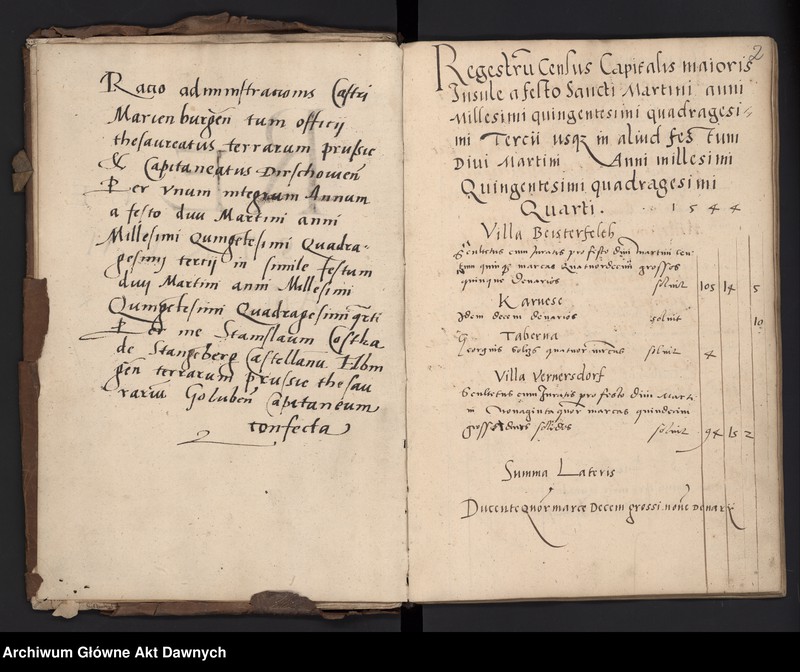 Racio administracionis Castri
Marienburgen̄ tum officij
thesaureatus terrarum prussie
& Capitaneatus Dirschovien̄
Per vnum integrum Annum
a festo divi Martini anni
Millesimi Quingētesimi Quadra-
gesimi tercij in simile festum
divi Martini anni Millesimi
Quingētesimi Quadragesimi qrti
Per me Stanislaum Costka
de Stangeberg Castellanū Elbin
gen̄ terrarum prussie thesau
rariū Goluben̄ Capitaneum
confecta
2
Regestrū Census Capitalis maioris
Insule a festo Sancti Martini anni
Millesimi quingentesimi quadragesi-
mi Tercii usqȝ in aliud festum
Divi Martini Anni millesimi
Quingentesimi quadragesimi
Quarti. 1 5 4 4
Villa Beisterfeldh
Scultetus cum Iuratis pro festo divi Martini cen
tum quinqȝ marcas Quatuordecim grossos
quinque denarios soluit 105 14 5
Karnese
Idem decem denarios soluit 10
Taberna
Georgius quatuor marcas soluit 4
Villa Vernersdorf
Scultetus cum Iuratis pro festo divi Marti
ni Nonaginta quor marcas quindecim
grossos duos solidos soluit 94 15 2
Summa Lateris
Ducente Quor marce Decem grossi nove Denarij
Archiwum Główne Akt Dawnych